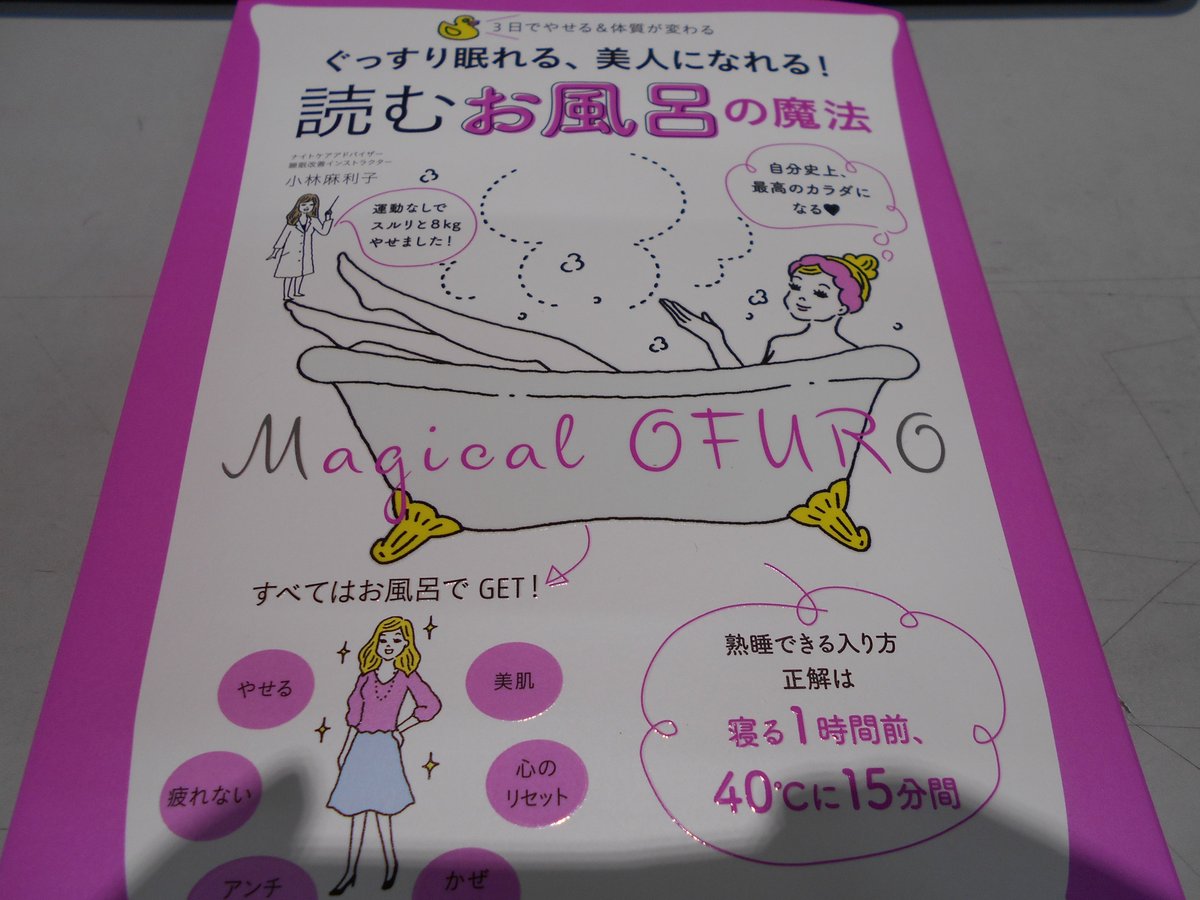 3日でやせる&体質が変わる
ぐっすり眠れる、美人になれる!
読むお風呂の魔法
ナイトケアアドバイザー
睡眠改善インストラクター
小林麻利子
運動なしで
スルリと8kg
やせました!
自分史上、
最高のカラダに
なる♥
Magical OFURO
すべてはお風呂でGET!
やせる
美肌
疲れない
心の
リセット
アンチ
かぜ
熟睡できる入り方
正解は
寝る1時間前、
40℃に15分間